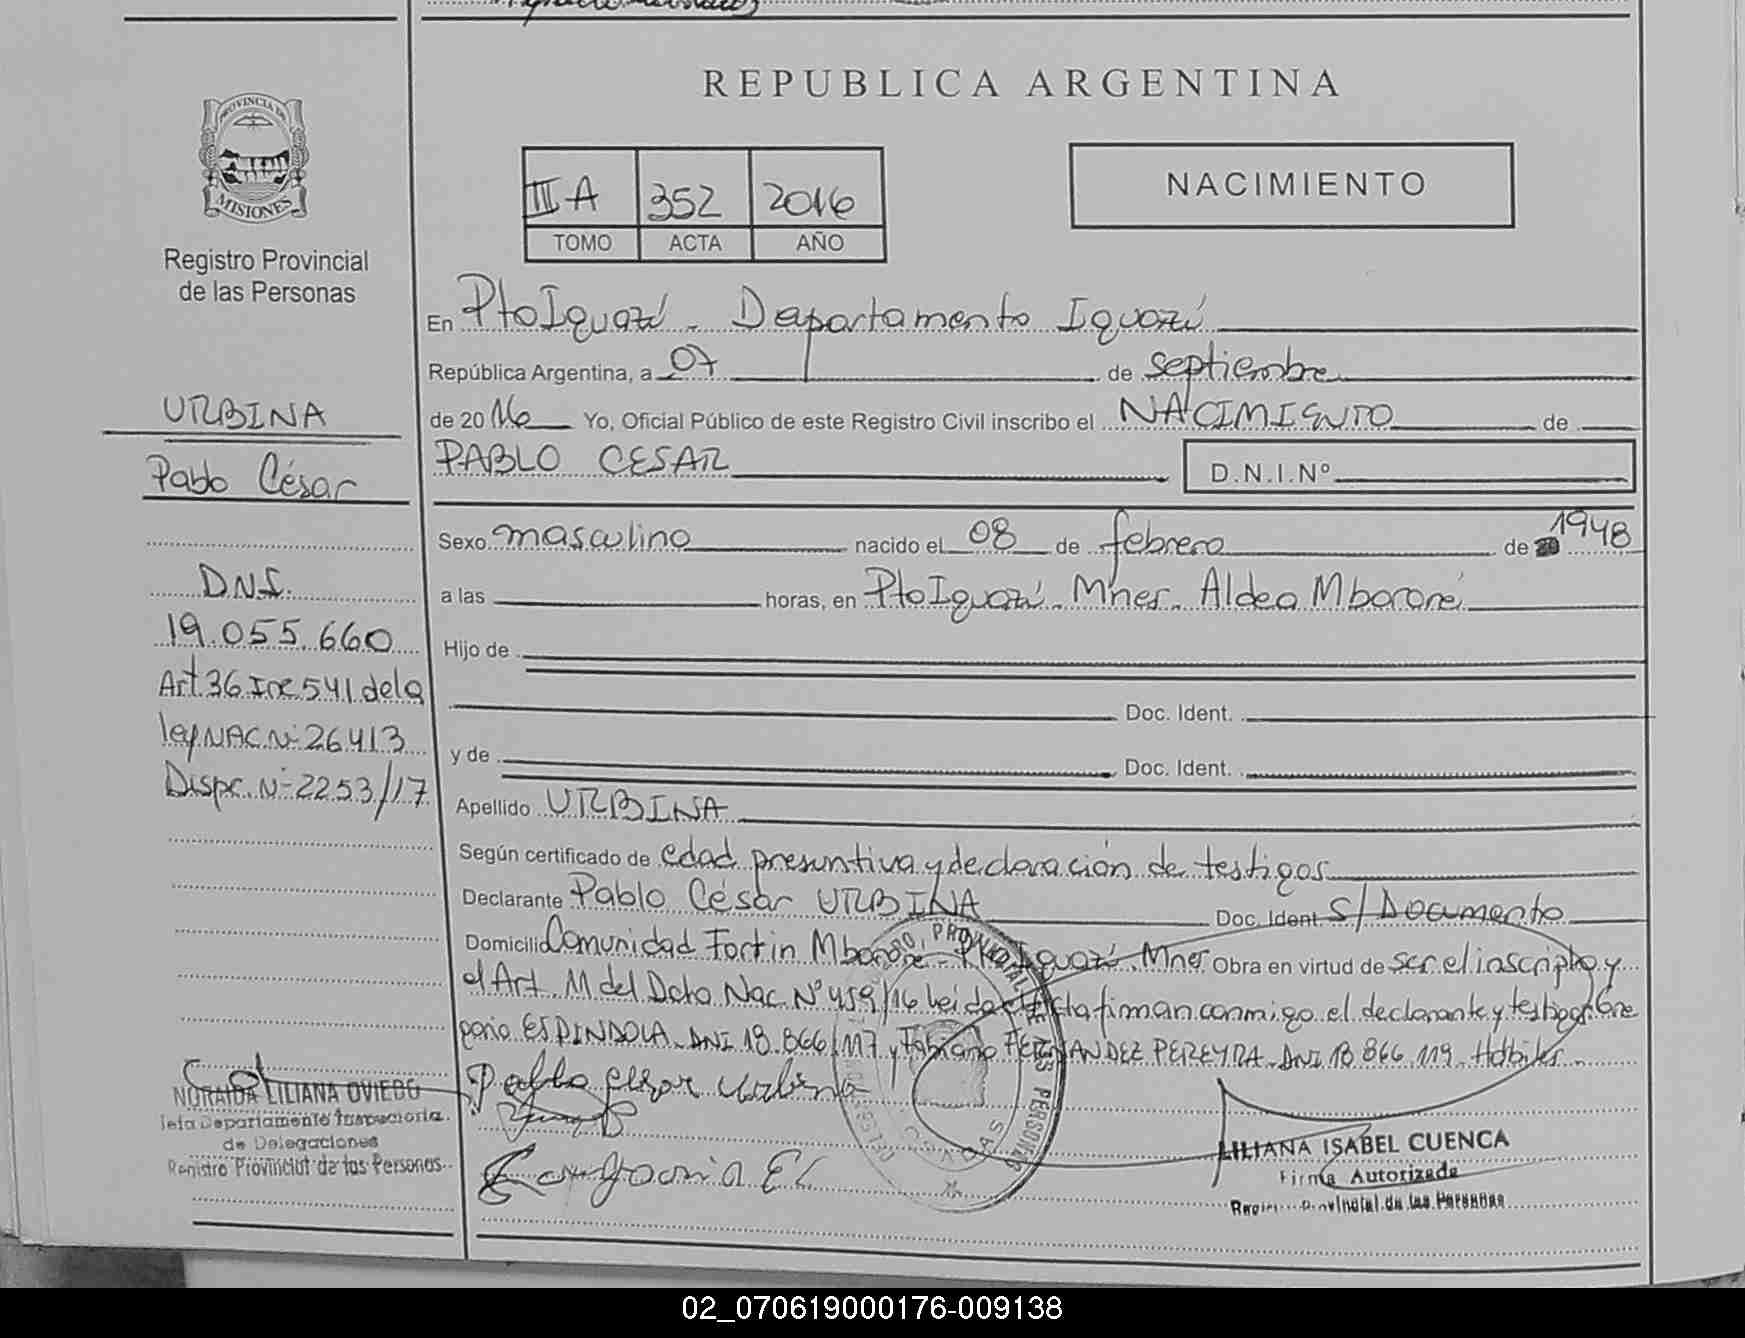 REPUBLICA ARGENTINA
PROVINCIA DE
MISIONES
Registro Provincial
de las Personas
III A 352 2016
TOMO ACTA AÑO
NACIMIENTO
URBINA
Pablo César
D.N.I.
19.055.660
Art.36 Inc 541 de la
ley NAC. Nº 26.413
Dispc. Nº 2253/17
NORAIDA LILIANA OVIEDO
Jefa Departamento Inspectoria
de Delegaciones
Registro Provincial de las Personas
En Pto Iguazú - Departamento Iguazú
República Argentina, a 07 de septiembre
de 2016 Yo, Oficial Público de este Registro Civil inscribo el NACIMIENTO de
PABLO CESAR D.N.I.Nº
Sexo masculino nacido el 08 de febrero de 1948
a las horas, en Pto Iguazú. Mnes. Aldea Mbororé
Hijo de
Doc. Ident.
y de Doc. Ident.
Apellido URBINA
Según certificado de edad presuntiva y declaración de testigos
Declarante Pablo César URBINA Doc. Ident. S/Documento
Domicilio Comunidad Fortin Mbororé - Pto Iguazú. Mnes Obra en virtud de ser el inscripto y
el Art. 11 del Dcto Nac. Nº 459/16 leida el acta firman conmigo el declarante y testigos Gre
gorio ESPINDOLA. DNI 18.866.117 y Fabiano FERNANDEZ PEREYRA. DNI 18 866.119. Habiles
Pablo Cesar Urbina
LILIANA ISABEL CUENCA
Firma Autorizada
Registro Provincial de las Personas
02_070619000176-009138